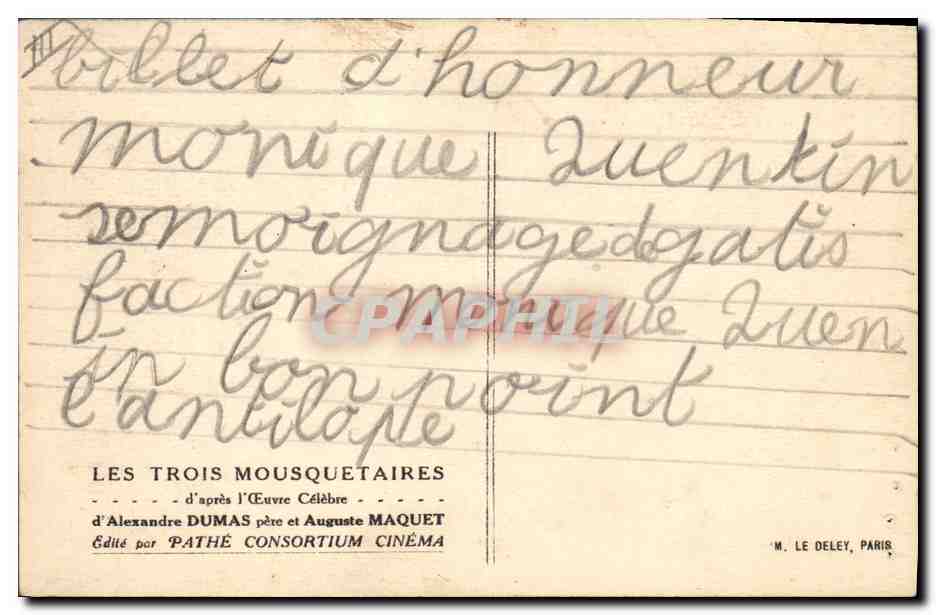 billet d'honneur
monique Quentin
semoignagedgatis
faction monique Quen
in bon point
l'antilope
CPAPHIL
LES TROIS MOUSQUETAIRES
- - - - - d'après l'Œuvre Célèbre - - - - -
d'Alexandre DUMAS père et Auguste MAQUET
Édité par PATHÉ CONSORTIUM CINÉMA
M. LE DELEY, PARIS